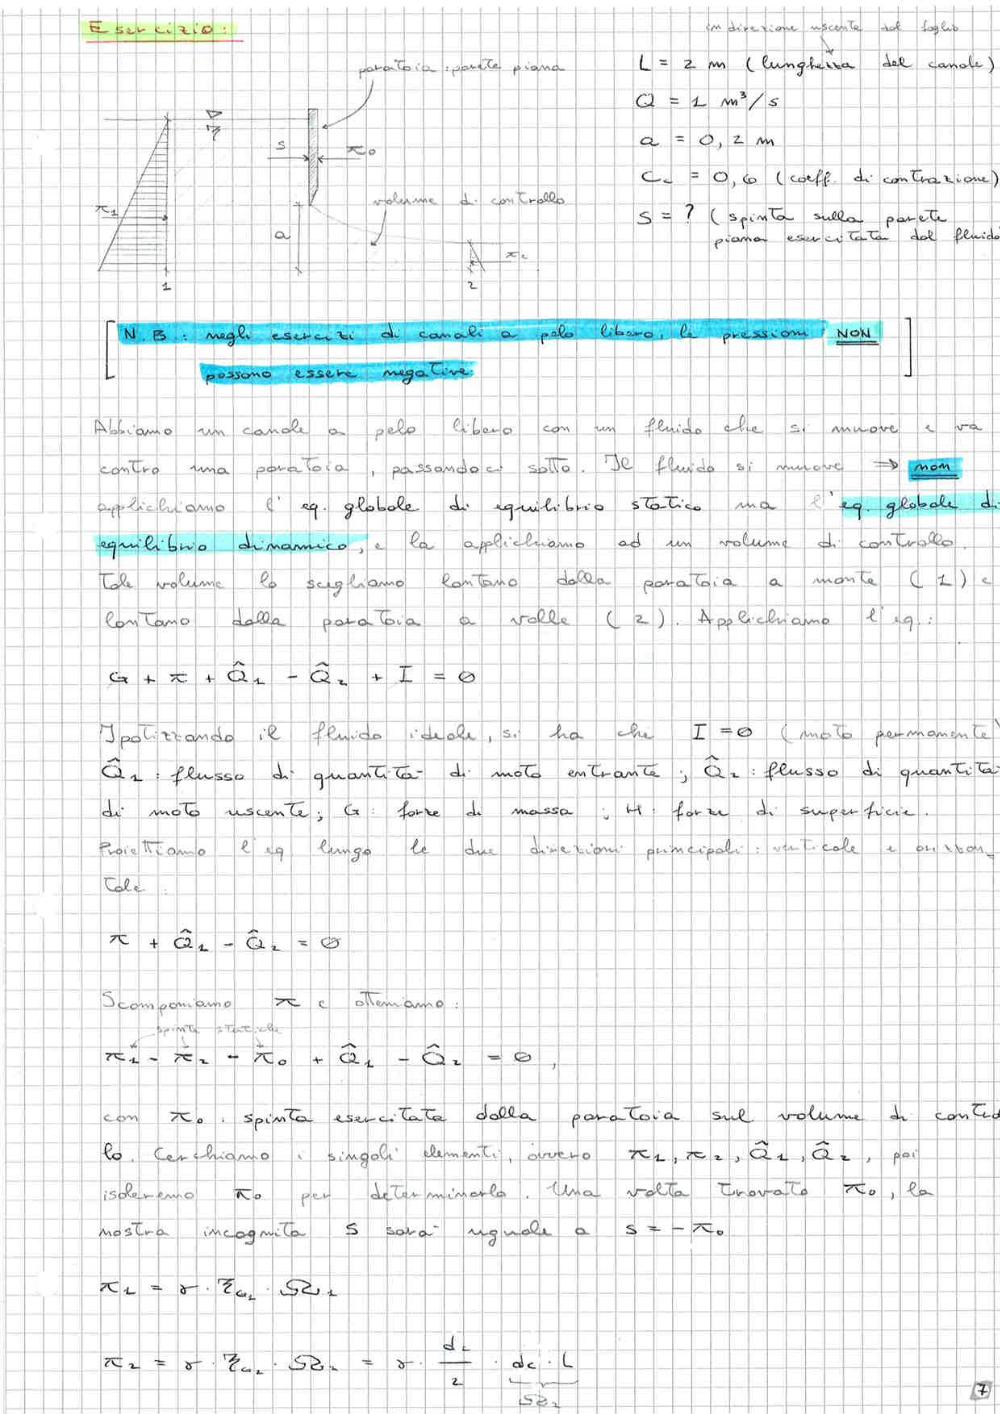 Esercizio:
in direzione uscente dal foglio
paratoia: parete piana
L = 2 m (lunghezza del canale)
Q = 1 m³/s
a = 0,2 m
Cc = 0,6 (coeff. di contrazione)
S = ? (spinta sulla parete
piana esercitata dal fluido
S
π0
π1
volume di controllo
a
π2
1
2
N.B.: negli esercizi di canali a pelo libero, le pressioni NON
possono essere negative.
Abbiamo un canale a pelo libero con un fluido che si muove e va
contro una paratoia, passandoci sotto. Il fluido si muove ⇒ non
applichiamo l'eq. globale di equilibrio statico ma l'eq. globale di
equilibrio dinamico, e la applichiamo ad un volume di controllo.
Tale volume lo scegliamo lontano dalla paratoia a monte (1) e
lontano dalla paratoia a valle (2). Applichiamo l'eq.:
G + π + Q̂1 - Q̂2 + I = 0
Ipotizzando il fluido ideale, si ha che I = 0 (moto permanente)
Q̂1: flusso di quantità di moto entrante; Q̂2: flusso di quantità
di moto uscente; G: forze di massa; H: forze di superficie.
Proiettiamo l'eq lungo le due direzioni principali: verticale e orizzon_
tale:
π + Q̂1 - Q̂2 = 0
Scomponiamo π e otteniamo:
spinte statiche
π1 - π2 - π0 + Q̂1 - Q̂2 = 0,
con π0: spinta esercitata dalla paratoia sul volume di control
lo. Cerchiamo i singoli elementi, ovvero π1, π2, Q̂1, Q̂2, poi
isoleremo π0 per determinarlo. Una volta trovato π0, la
nostra incognita S sarà uguale a S = -π0
π1 = γ · ζG1 · Ω1
π2 = γ · ζG2 · Ω2 = γ · dc/2 · dc · L
Ω2
7